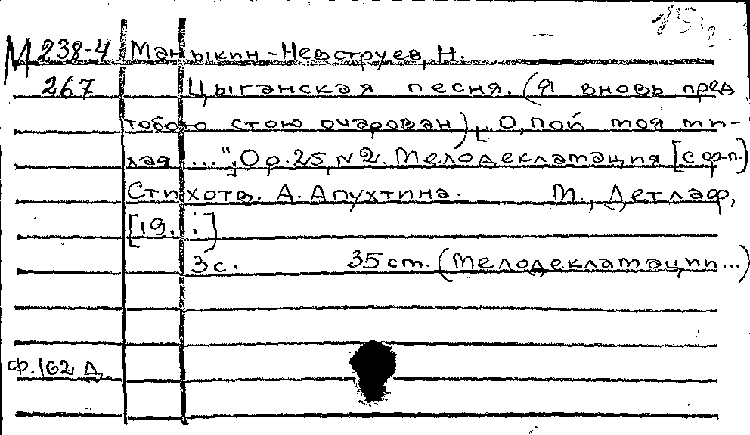 М 238-4 Маныкин-Невструев, Н.
267 Цыганская песня. (Я вновь пред
тобою стою очарован) [„О, пой моя ми-
лая ...", Op.25, №2. Мелодекламация [с ф-п.]
Стихотв. А. Апухтина. М., Детлаф,
[19..]
3с. 35 cm. (Мелодекламации...)
ф. 162 Д